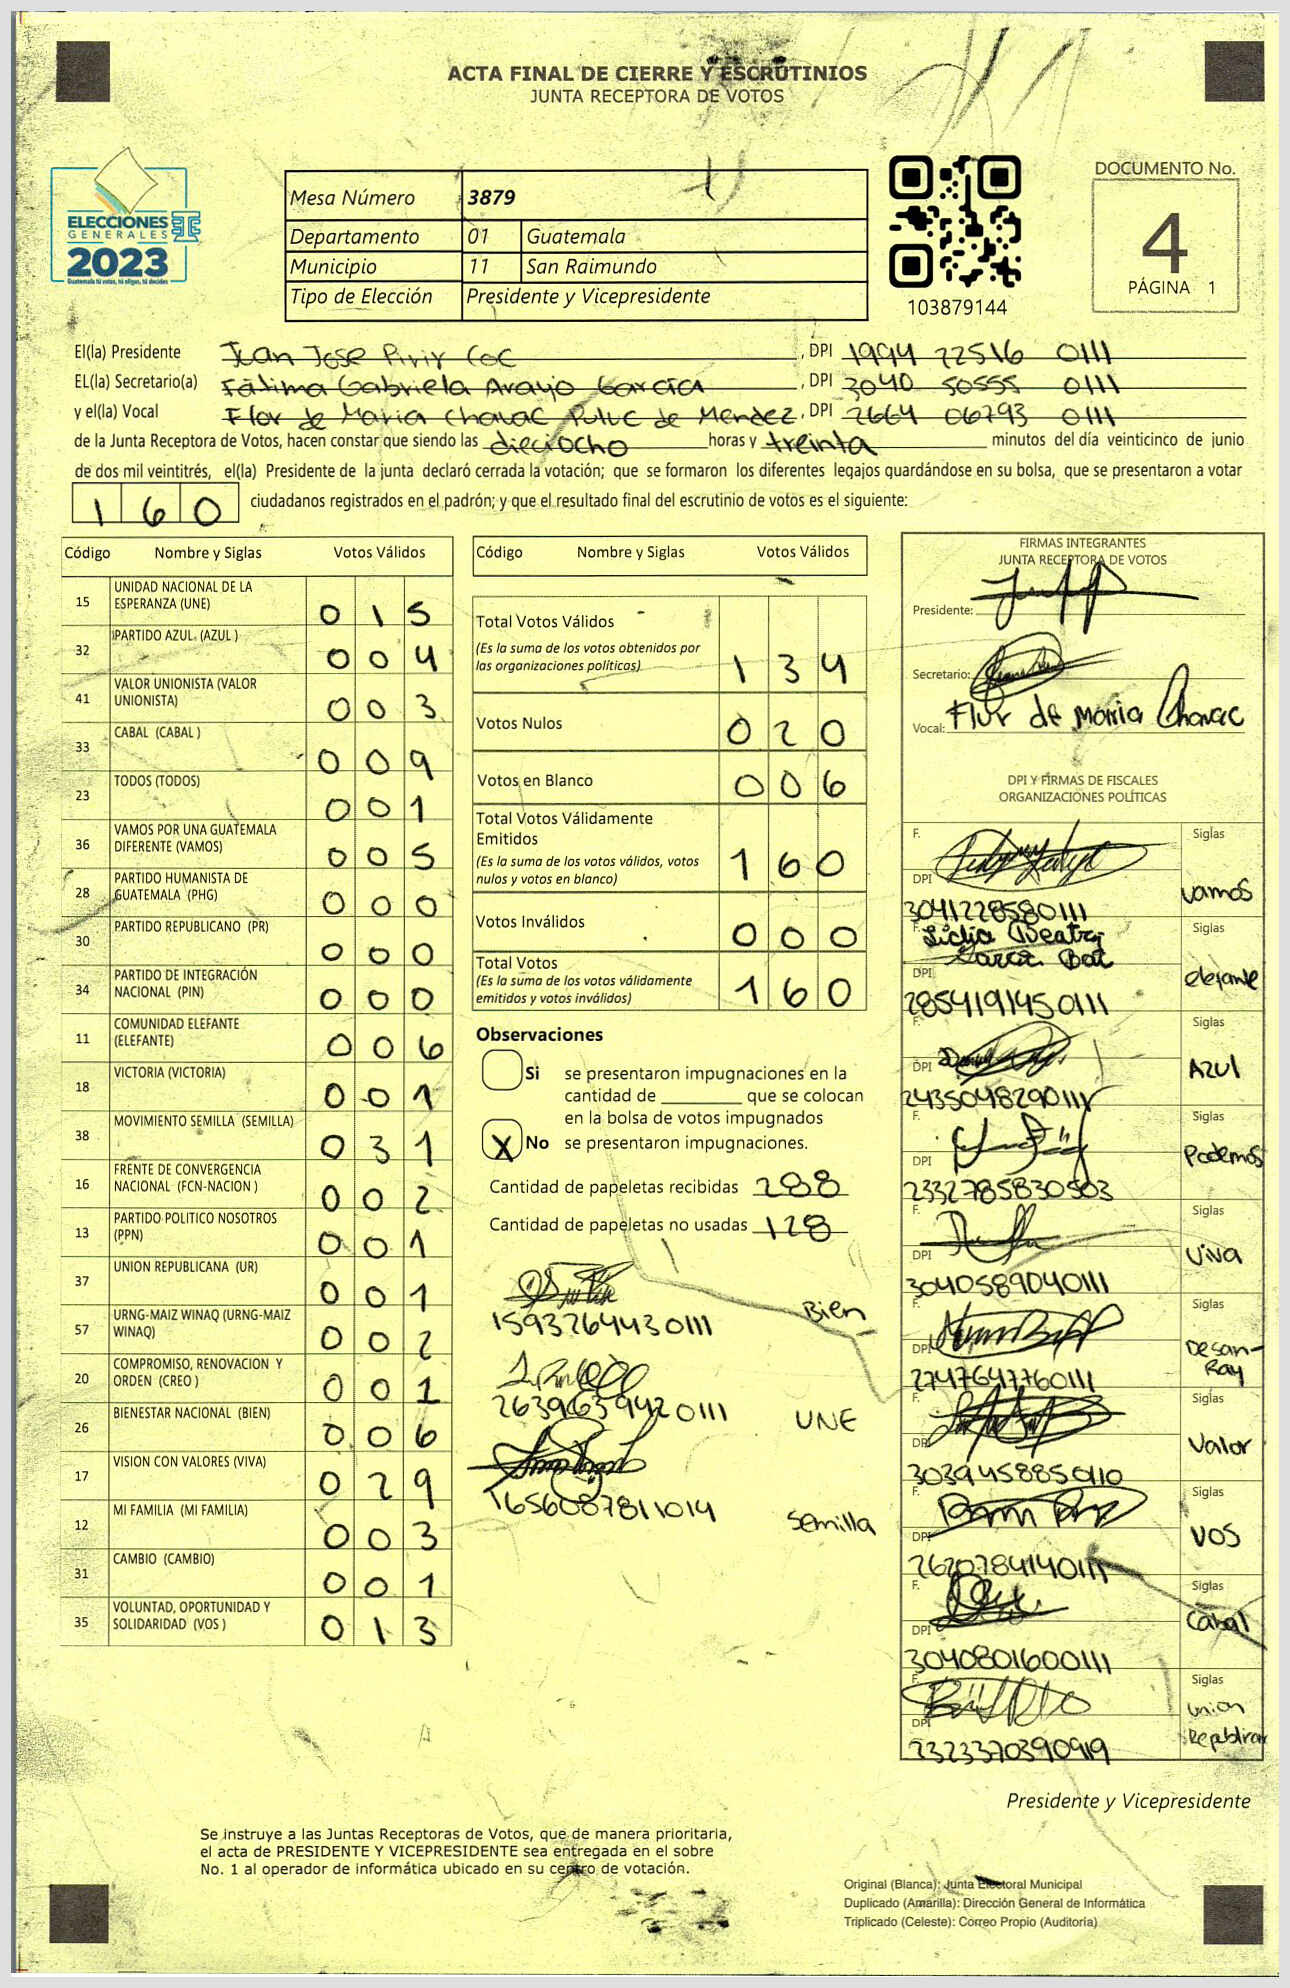 ACTA FINAL DE CIERRE Y ESCRUTINIOS
JUNTA RECEPTORA DE VOTOS
ELECCIONES
GENERALES
2023
Guatemala tú votas, tú eliges, tú decides
Mesa Número 3879
Departamento 01 Guatemala
Municipio 11 San Raimundo
Tipo de Elección Presidente y Vicepresidente
103879144
DOCUMENTO No.
4
PÁGINA 1
El(la) Presidente Juan Jose Pirir Coc, DPI 1994 22516 0111
EL(la) Secretario(a) Fátima Gabriela Araujo García, DPI 3040 50555 0111
y el(la) Vocal Flor de Maria Chavac Puluc de Mendez, DPI 2664 06793 0111
de la Junta Receptora de Votos, hacen constar que siendo las dieciocho horas y treinta minutos del día veinticinco de junio
de dos mil veintitrés, el(la) Presidente de la junta declaró cerrada la votación; que se formaron los diferentes legajos guardándose en su bolsa, que se presentaron a votar
160 ciudadanos registrados en el padrón; y que el resultado final del escrutinio de votos es el siguiente:
Código Nombre y Siglas Votos Válidos
15 UNIDAD NACIONAL DE LA ESPERANZA (UNE) 0 1 5
32 PARTIDO AZUL (AZUL ) 0 0 4
41 VALOR UNIONISTA (VALOR UNIONISTA) 0 0 3
33 CABAL (CABAL ) 0 0 9
23 TODOS (TODOS) 0 0 1
36 VAMOS POR UNA GUATEMALA DIFERENTE (VAMOS) 0 0 5
28 PARTIDO HUMANISTA DE GUATEMALA (PHG) 0 0 0
30 PARTIDO REPUBLICANO (PR) 0 0 0
34 PARTIDO DE INTEGRACIÓN NACIONAL (PIN) 0 0 0
11 COMUNIDAD ELEFANTE (ELEFANTE) 0 0 6
18 VICTORIA (VICTORIA) 0 0 1
38 MOVIMIENTO SEMILLA (SEMILLA) 0 3 1
16 FRENTE DE CONVERGENCIA NACIONAL (FCN-NACION ) 0 0 2
13 PARTIDO POLITICO NOSOTROS (PPN) 0 0 1
37 UNION REPUBLICANA (UR) 0 0 1
57 URNG-MAIZ WINAQ (URNG-MAIZ WINAQ) 0 0 2
20 COMPROMISO, RENOVACION Y ORDEN (CREO ) 0 0 1
26 BIENESTAR NACIONAL (BIEN) 0 0 6
17 VISION CON VALORES (VIVA) 0 2 9
12 MI FAMILIA (MI FAMILIA) 0 0 3
31 CAMBIO (CAMBIO) 0 0 1
35 VOLUNTAD, OPORTUNIDAD Y SOLIDARIDAD (VOS ) 0 1 3
Código Nombre y Siglas Votos Válidos
Total Votos Válidos
(Es la suma de los votos obtenidos por
las organizaciones políticas) 1 3 4
Votos Nulos 0 2 0
Votos en Blanco 0 0 6
Total Votos Válidamente
Emitidos
(Es la suma de los votos válidos, votos
nulos y votos en blanco) 1 6 0
Votos Inválidos 0 0 0
Total Votos
(Es la suma de los votos válidamente
emitidos y votos inválidos) 1 6 0
Observaciones
Si se presentaron impugnaciones en la
cantidad de ________ que se colocan
en la bolsa de votos impugnados
X No se presentaron impugnaciones.
Cantidad de papeletas recibidas 288
Cantidad de papeletas no usadas 128
1593764430111 Bien
2639639420111 UNE
1656087811014 Semilla
FIRMAS INTEGRANTES
JUNTA RECEPTORA DE VOTOS
Presidente:
Secretario:
Vocal: Flor de Maria Chavac
DPI Y FIRMAS DE FISCALES
ORGANIZACIONES POLÍTICAS
F. Siglas
DPI Vamos
3041228580111
F. Lidia Beatriz Siglas
Garcia Bat
DPI elefante
2854191450111
F. Siglas
DPI AZUl
2435048290111
F.
DPI Podemos
2332785830503
F. Siglas
DPI Viva
3040589040111
F. Siglas
DPI Desan-
Ray
2747647760111
F. Siglas
DPI Valor
3039458850110
F. Siglas
DPI VOS
2620784140111
F. Siglas
DPI Cabal
3040801600111
F. Siglas
DPI Union
Republicana
2323370390919
Presidente y Vicepresidente
Se instruye a las Juntas Receptoras de Votos, que de manera prioritaria,
el acta de PRESIDENTE Y VICEPRESIDENTE sea entregada en el sobre
No. 1 al operador de informática ubicado en su centro de votación.
Original (Blanca): Junta Electoral Municipal
Duplicado (Amarilla): Dirección General de Informática
Triplicado (Celeste): Correo Propio (Auditoría)